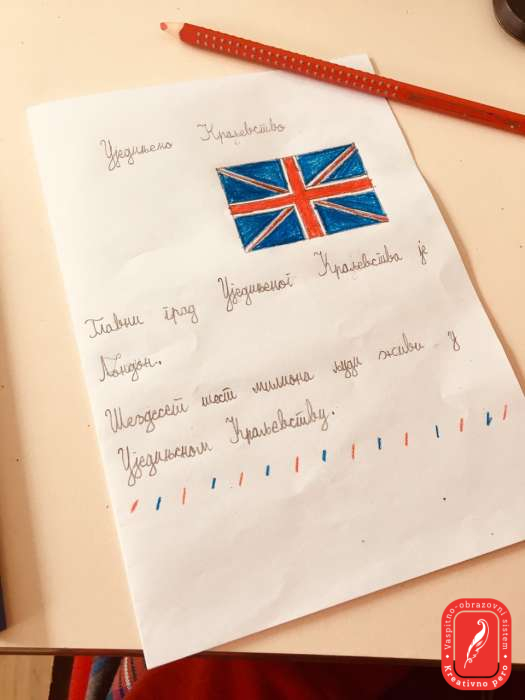 Уједињено Краљевство
Главни град Уједињеног Краљевства је
Лондон.
Шездесет шест милиона људи живи у
Уједињеном Краљевству.
Vaspitno-obrazovni sistem
Kreativno pero